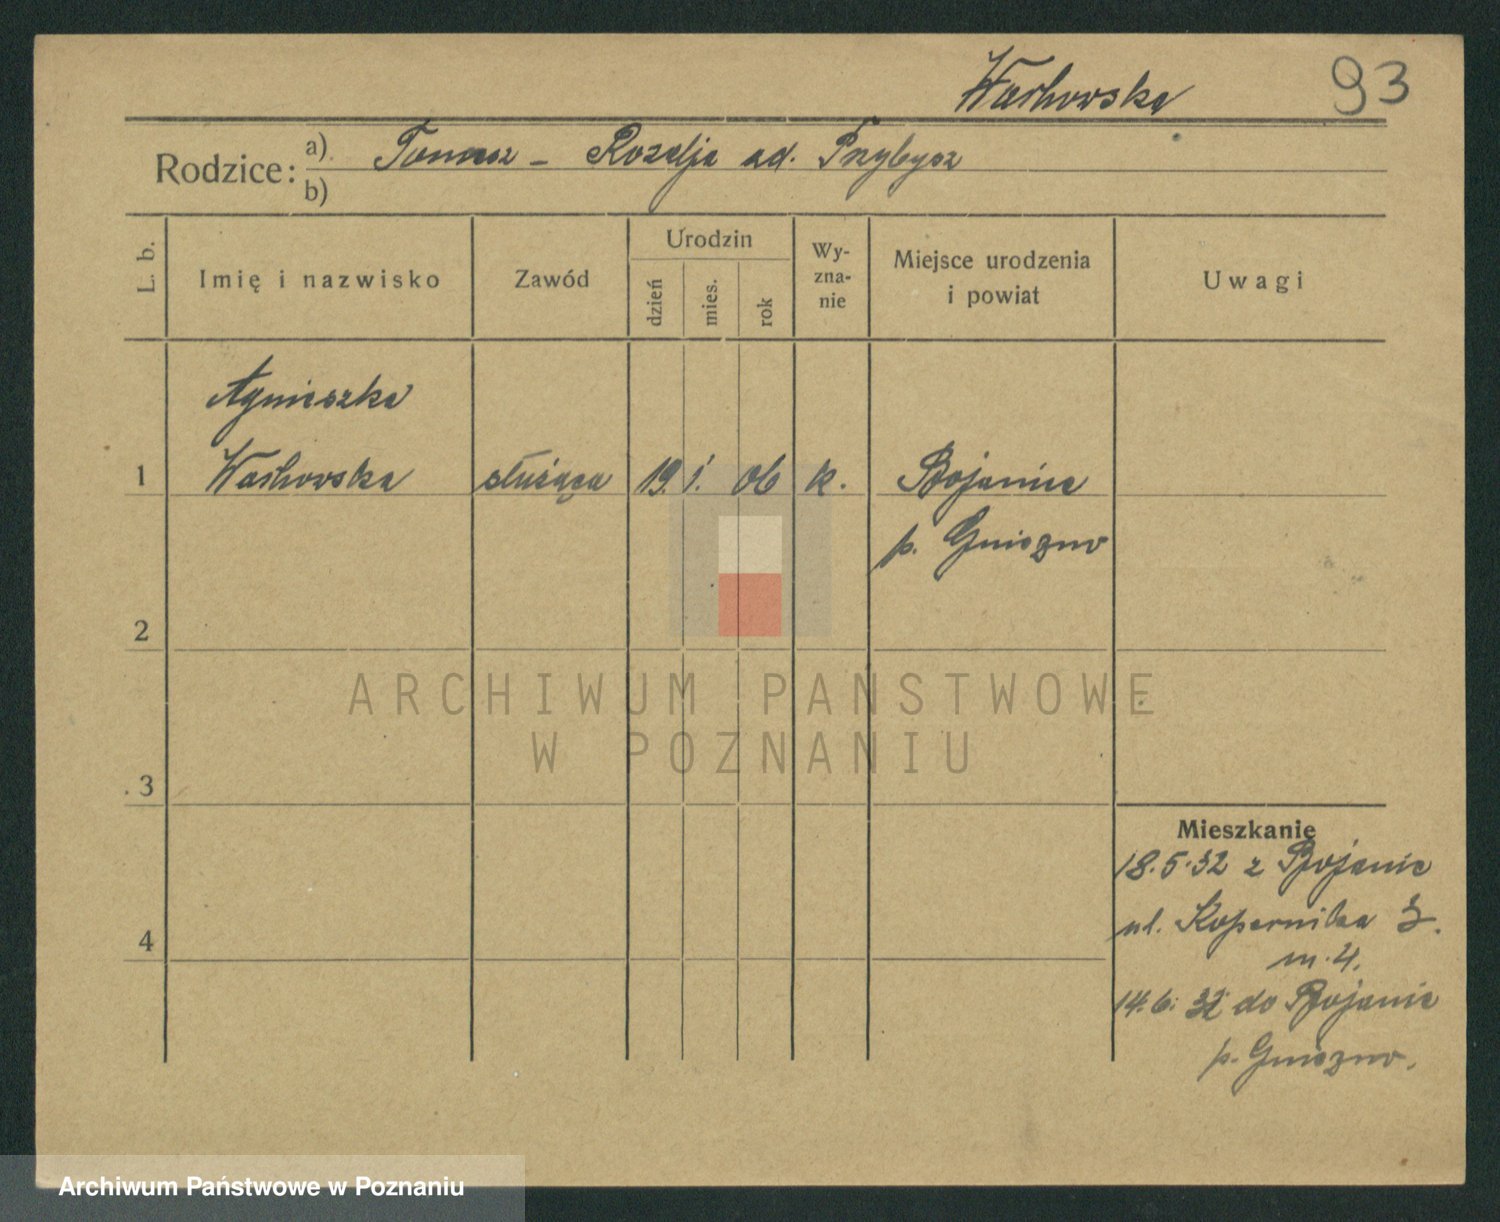 Wachowska 93
Rodzice: a) Tomasz - Rozalja ud. Przybysz
b)
L. b. Imię i nazwisko Zawód Urodzin dzień mies. rok Wy-zna-nie Miejsce urodzenia i powiat Uwagi
Agnieszka
1 Wachowska służąca 19. 1. 06 k. Bojanice
p. Gniezno
2
ARCHIWUM PAŃSTWOWE
W POZNANIU
3
Mieszkanie
18.5.32 z Bojanic
ul. Kopernika 3.
4
m. 4.
14.6. 32 do Bojanic
p. Gniezno.
Archiwum Państwowe w Poznaniu